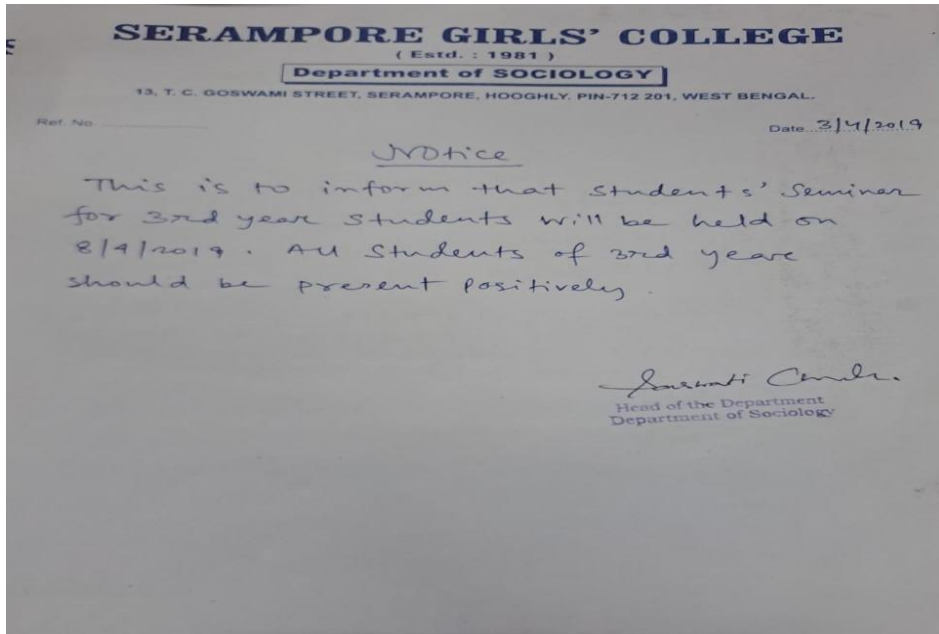 SERAMPORE GIRLS' COLLEGE
( Estd. : 1981 )
Department of SOCIOLOGY
13, T. C. GOSWAMI STREET, SERAMPORE, HOOGHLY. PIN-712 201, WEST BENGAL.
Ref. No.
Date 3/4/2019
Notice
This is to inform that Students' Seminar
for 3rd year Students will be held on
8/4/2019. All Students of 3rd year
should be present positively.
Head of the Department
Department of Sociology